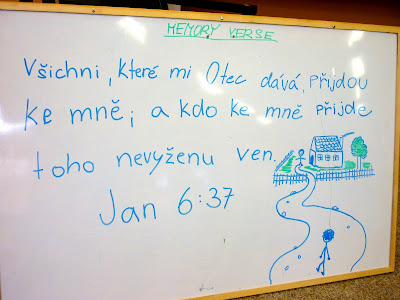 MEMORY VERSE
Všichni, které mi Otec dává, přijdou
ke mně; a kdo ke mně přijde
toho nevyženu ven.
Jan 6:37